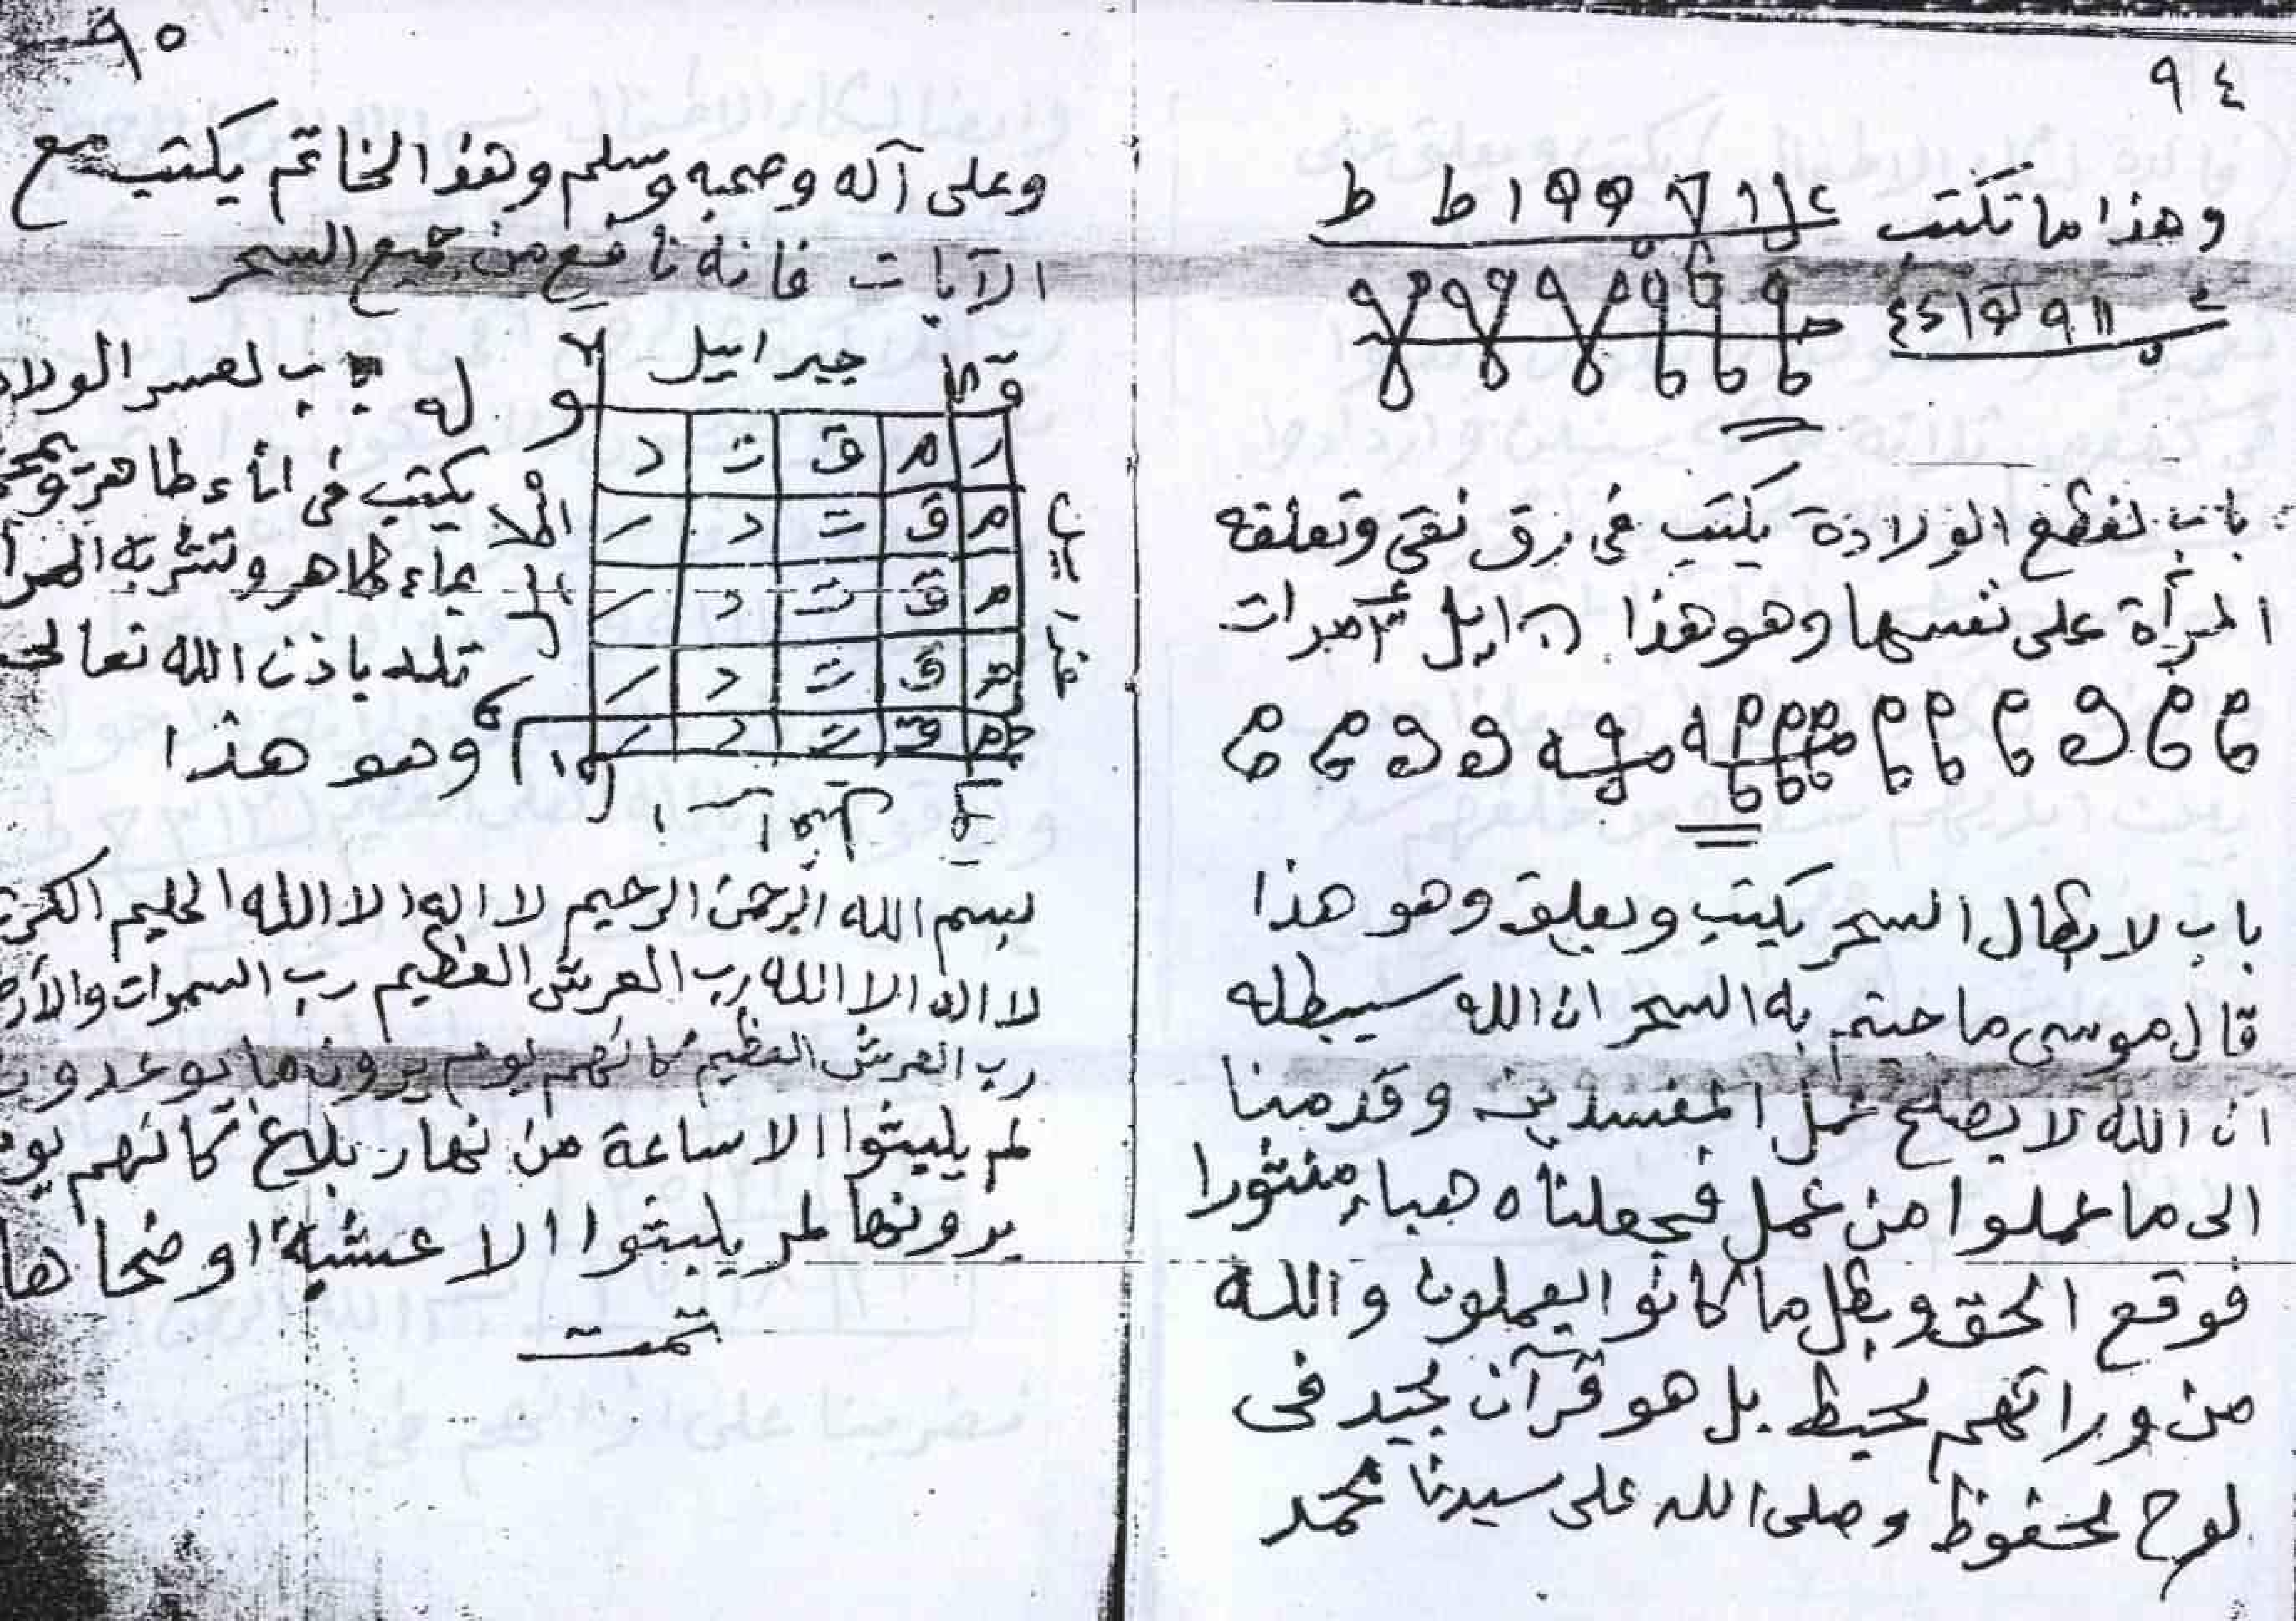 ٩٤
وهذا ما تكتب
باب لقطع الولادة يكتب فى رق نقى وتعلقه
المرأة على نفسها وهو هذا
باب لابطال السحر يكتب ويعلق وهو هذا
قال موسى ما جيتم به السحر ان الله سيبطله
ان الله لا يصلح عمل المفسدين وقدمنا
الى ما عملوا من عمل فجعلناه هباء منثورا
فوقع الحق وبطل ما كانوا يعملون والله
من ورائهم محيط بل هو قرآن مجيد فى
لوح محفوظ وصلى الله على سيدنا محمد
٩٥
وعلى آله وصحبه وسلم وهذا الخاتم يكتب مع
الآيات فانه نافع من جميع السحر
جبراييل
ر م ق ت د
م ق ت د ر
م ق ت د ر
م ق ت د ر
م ق ت د ر
باب لعسر الولاد
يكتب فى اناء طاهر
بماء طاهر وتشربه
تلد باذن الله تعالى
وهو هذا
بسم الله الرحمن الرحيم لا اله الا الله الحليم الكر
لا اله الا الله رب العرش العظيم رب السموات والأر
رب العرش العظيم كانهم يوم يرون ما يوعدون
لم يلبثوا الا ساعة من نهار بلاغ كانهم يو
يرونها لم يلبثوا الا عشية او ضحاها
تمت